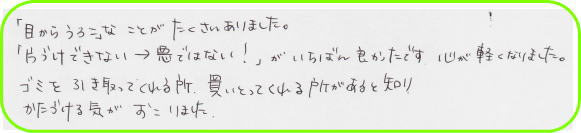 「目からうろこ」な ことが たくさんありました。
「片づけできない → 悪ではない！」が いちばん 良かったです 心が 軽くなりました。
ゴミを 引き取ってくれる所、買いとってくれる所があると知り
かたづける気が おこりました.